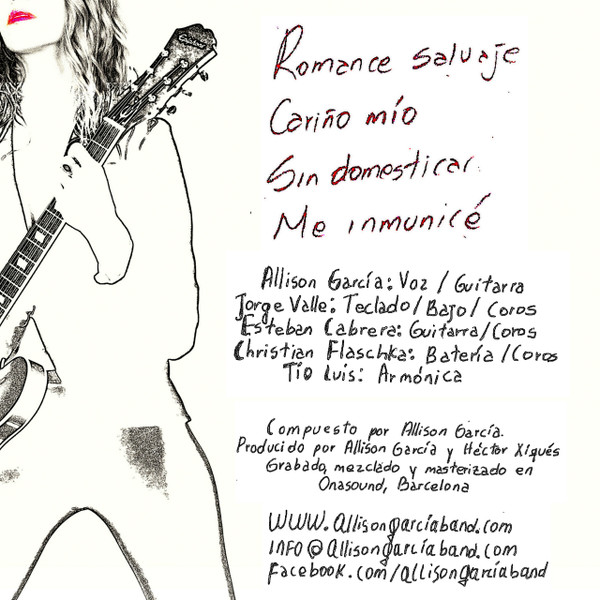 Romance salvaje
Cariño mío
Sin domesticar
Me inmunicé
Allison García: Voz / Guitarra
Jorge Valle: Teclado / Bajo / Coros
Esteban Cabrera: Guitarra / Coros
Christian Flaschka: Batería / Coros
Tío Luis: Armónica
Compuesto por Allison García.
Producido por Allison García y Héctor Xiqués
Grabado, mezclado y masterizado en
Onasound, Barcelona
WWW.allisongarcíaband.com
INFO@allisongarcíaband.com
Facebook.com/allisongarcíaband